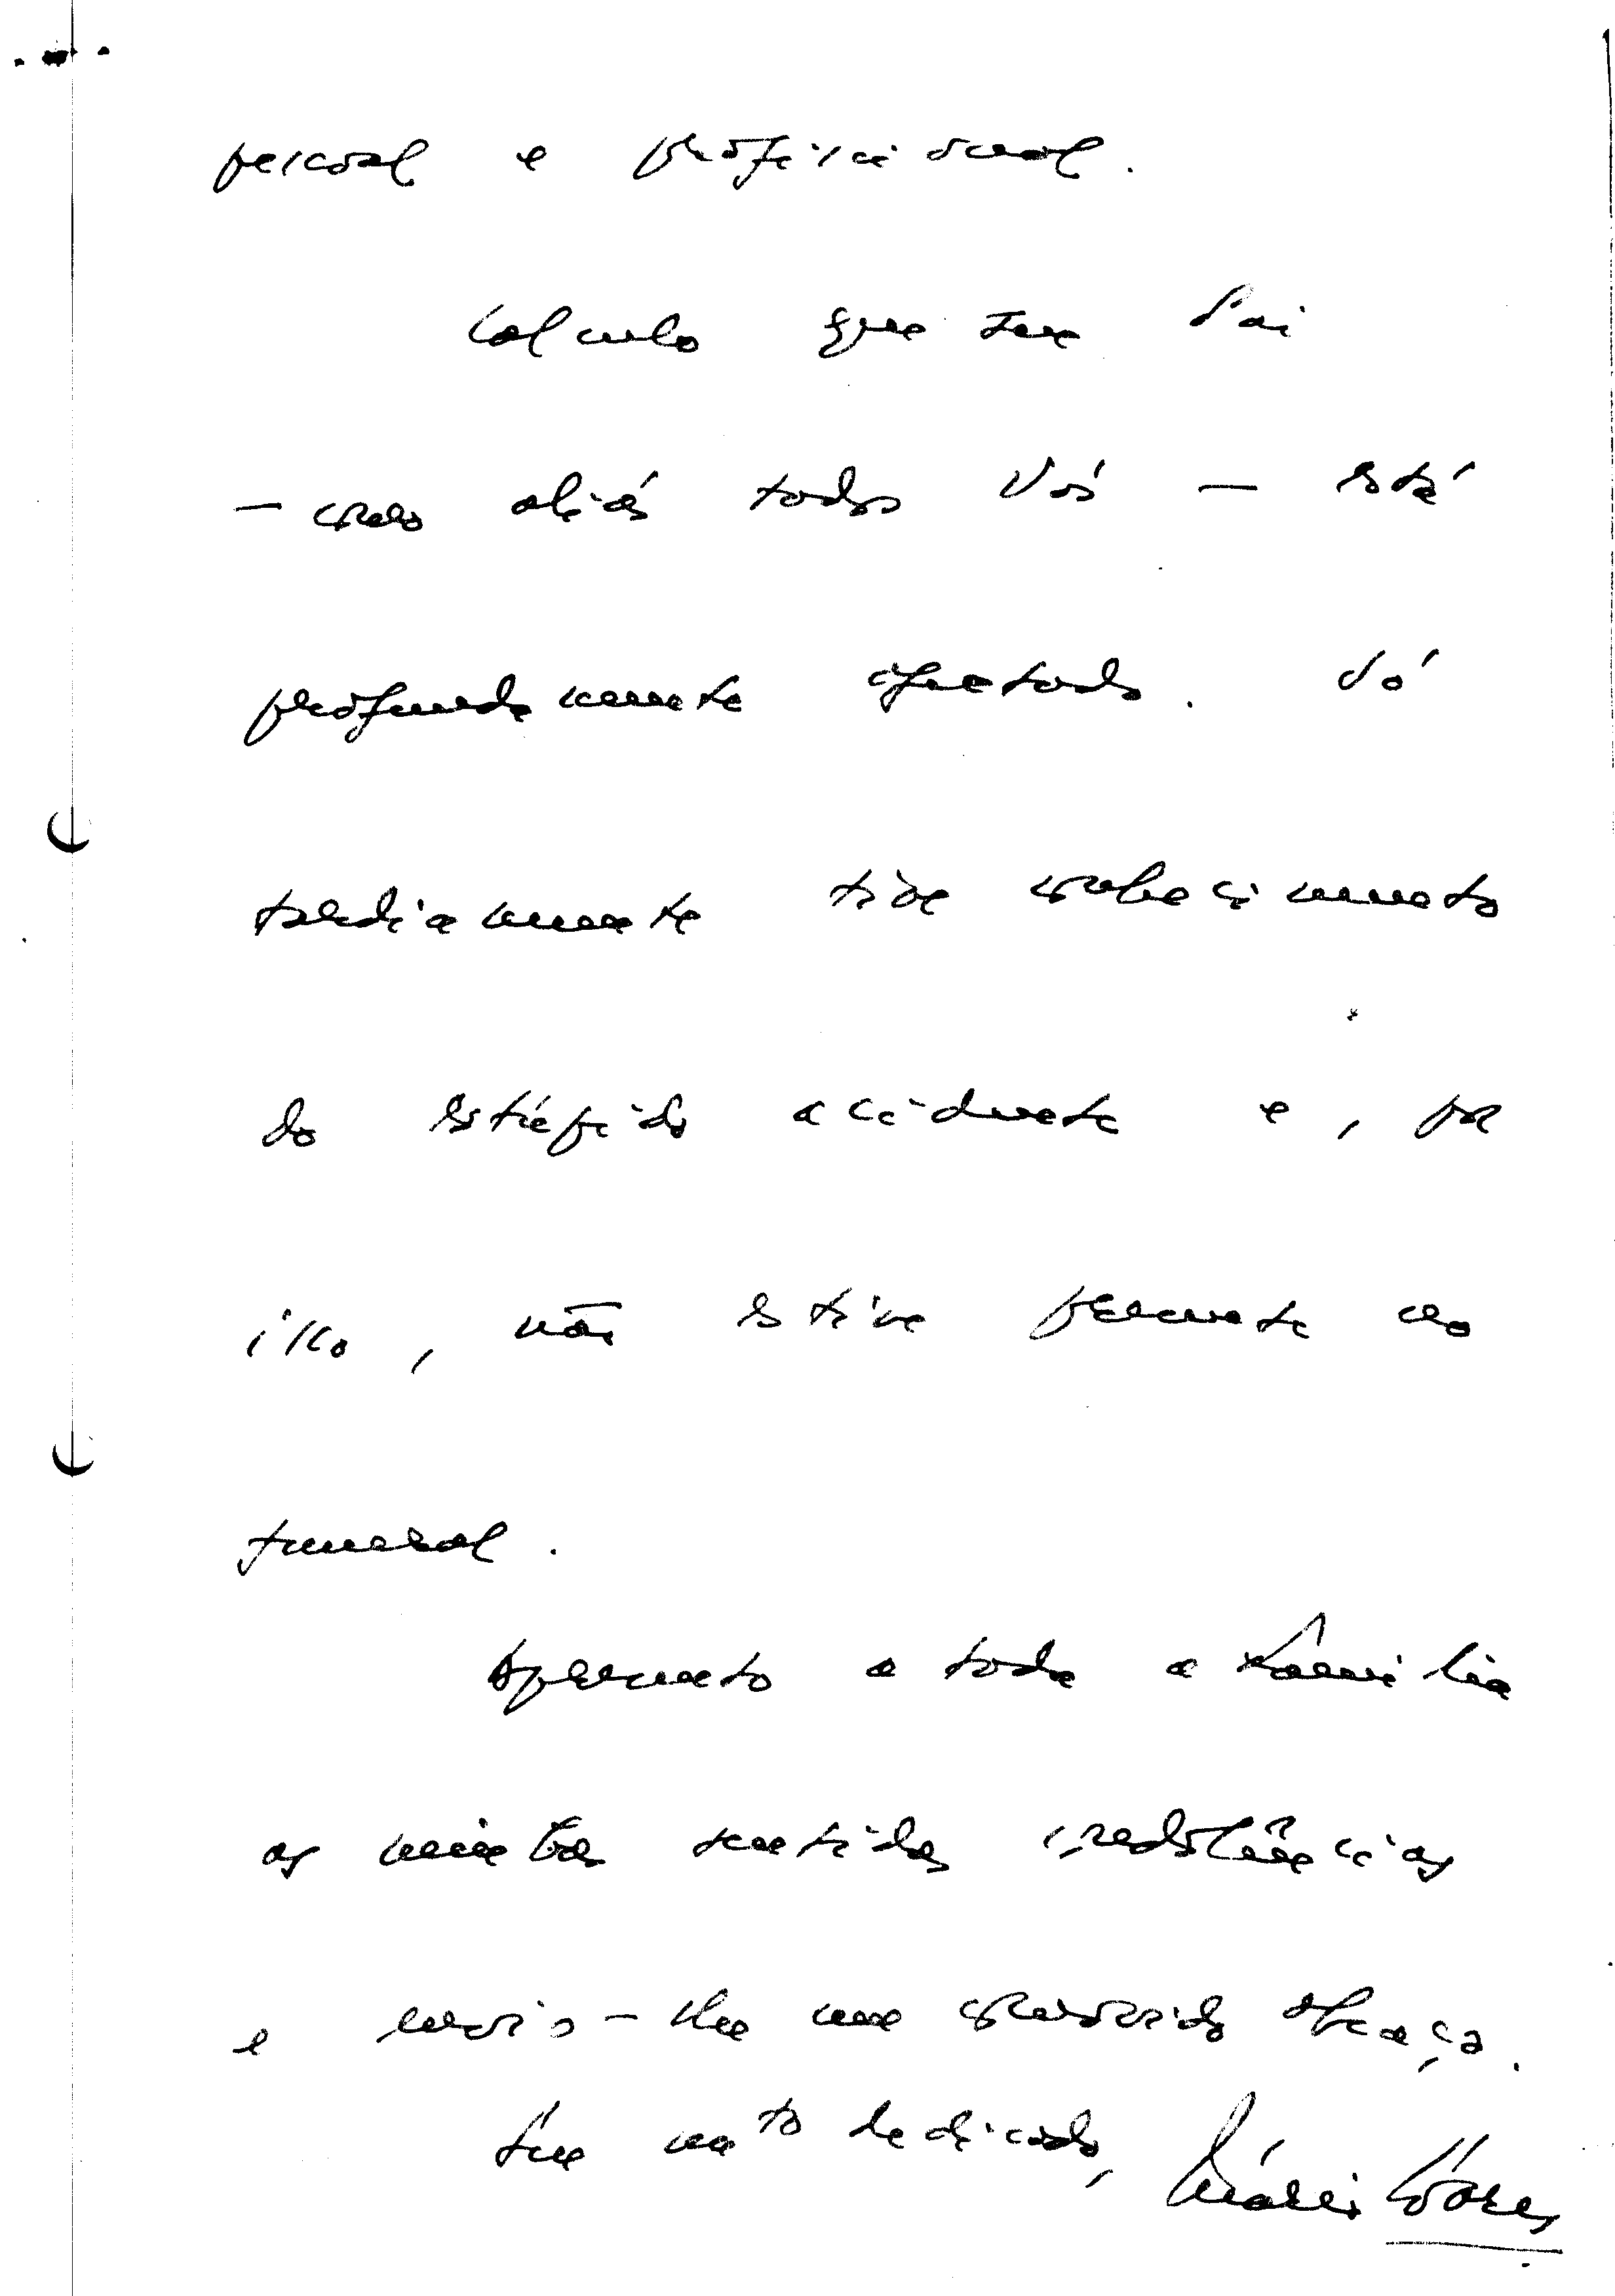 pessoal e profissional.
Calculo que seu Pai
— como aliás todos Vós — está
profundamente afectado. Só
tardiamente tive conhecimento
do estúpido acidente e, por
isso, não estive presente ao
funeral.
Apresento a toda a Família
as minhas sentidas condolências
e envio-lhe um comovido abraço.
Seu mto dedicado,
Mário Soares